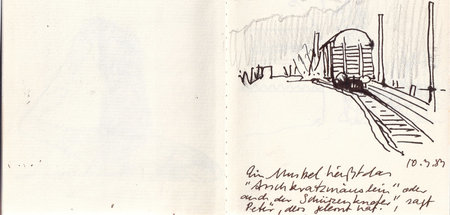 10.9.89
Ein Muskel heißt das
"Arschkratzmäuslein" oder
auch der Schürzenknoter" sagt
Peter, der gelernt hat.